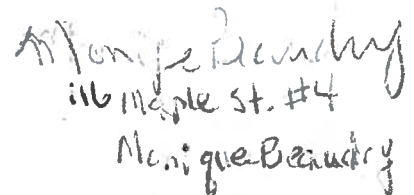 Monique Beaudry
116 Maple St. #4
Monique Beaudry